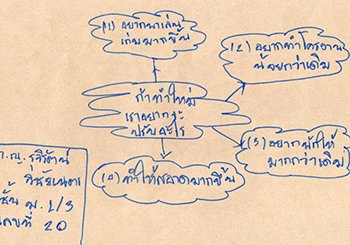 (1) อยากมาเล่น
เก่งมากขึ้น
(2) อยากทำโครงงาน
น้อยกว่าเดิม
ถ้าทำใหม่
เราอยาก
ปรับอะไร
(3) อยากพักให้
มากกว่าเดิม
(4) ทำให้ฉลาดมากขึ้น
ด.ญ. รุจิรัตน์
วิชัยเนตร
ชั้น ม.1/3
เลขที่ 20